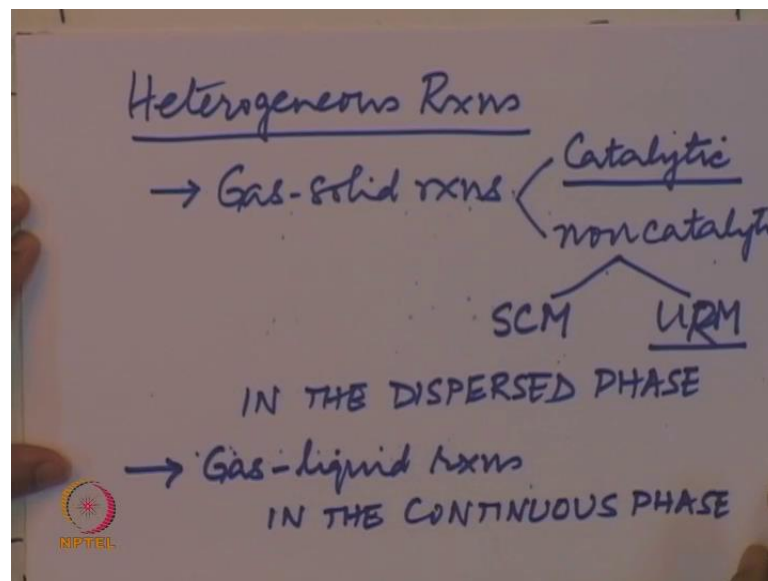 Heterogeneous Rxns
→ Gas-solid rxns
Catalytic
noncatalyti
SCM URM
IN THE DISPERSED PHASE
→ Gas-liquid rxns
IN THE CONTINUOUS PHASE
NPTEL